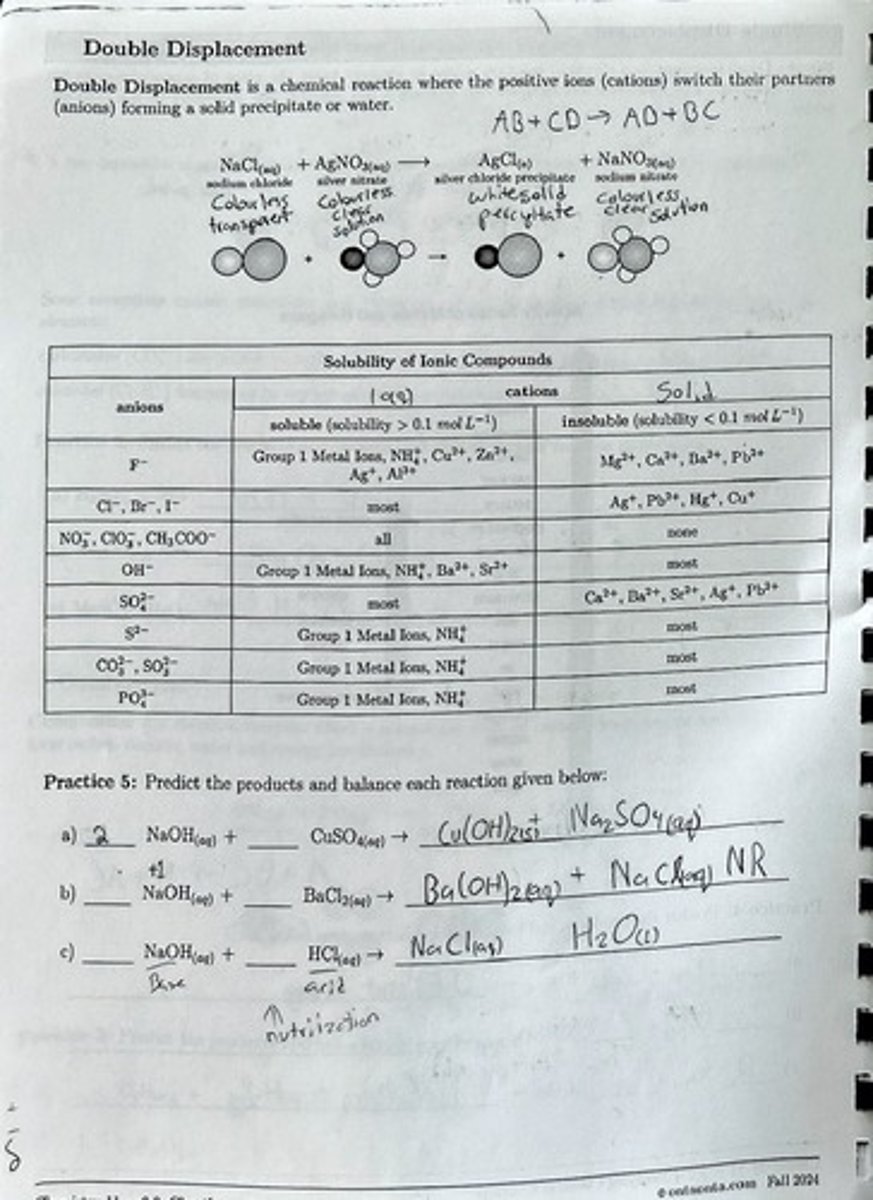 Double Displacement
Double Displacement is a chemical reaction where the positive ions (cations) switch their partners
(anions) forming a solid precipitate or water.
AB + CD → AD + BC
NaCl(aq) + AgNO3(aq) → AgCl(s) + NaNO3(aq)
sodium chloride silver nitrate silver chloride precipitate sodium nitrate
Colourless Colourless white solid Colourless
transparent clear solution percyitate clear solution
+ → +
Solubility of Ionic Compounds
anions (aq) cations Solid
soluble (solubility > 0.1 mol L⁻¹) insoluble (solubility < 0.1 mol L⁻¹)
F⁻ Group 1 Metal Ions, NH₄⁺, Cu²⁺, Zn²⁺, Mg²⁺, Ca²⁺, Ba²⁺, Pb²⁺
Ag⁺, Al³⁺
Cl⁻, Br⁻, I⁻ most Ag⁺, Pb²⁺, Hg⁺, Cu⁺
NO₃⁻, ClO₃⁻, CH₃COO⁻ all none
OH⁻ Group 1 Metal Ions, NH₄⁺, Ba²⁺, Sr²⁺ most
SO₄²⁻ most Ca²⁺, Ba²⁺, Sr²⁺, Ag⁺, Pb²⁺
S²⁻ Group 1 Metal Ions, NH₄⁺ most
CO₃²⁻, SO₃²⁻ Group 1 Metal Ions, NH₄⁺ most
PO₄³⁻ Group 1 Metal Ions, NH₄⁺ most
Practice 5: Predict the products and balance each reaction given below:
a) 2 NaOH(aq) + ____ CuSO4(aq) → Cu(OH)2(s) + Na2SO4(aq)
+1
b) ____ NaOH(aq) + ____ BaCl2(aq) → Ba(OH)2(aq) + NaCl(aq) NR
c) ____ NaOH(aq) + ____ HCl(aq) → NaCl(aq) H2O(l)
Base acid
↑
nutriization
Fall 2024